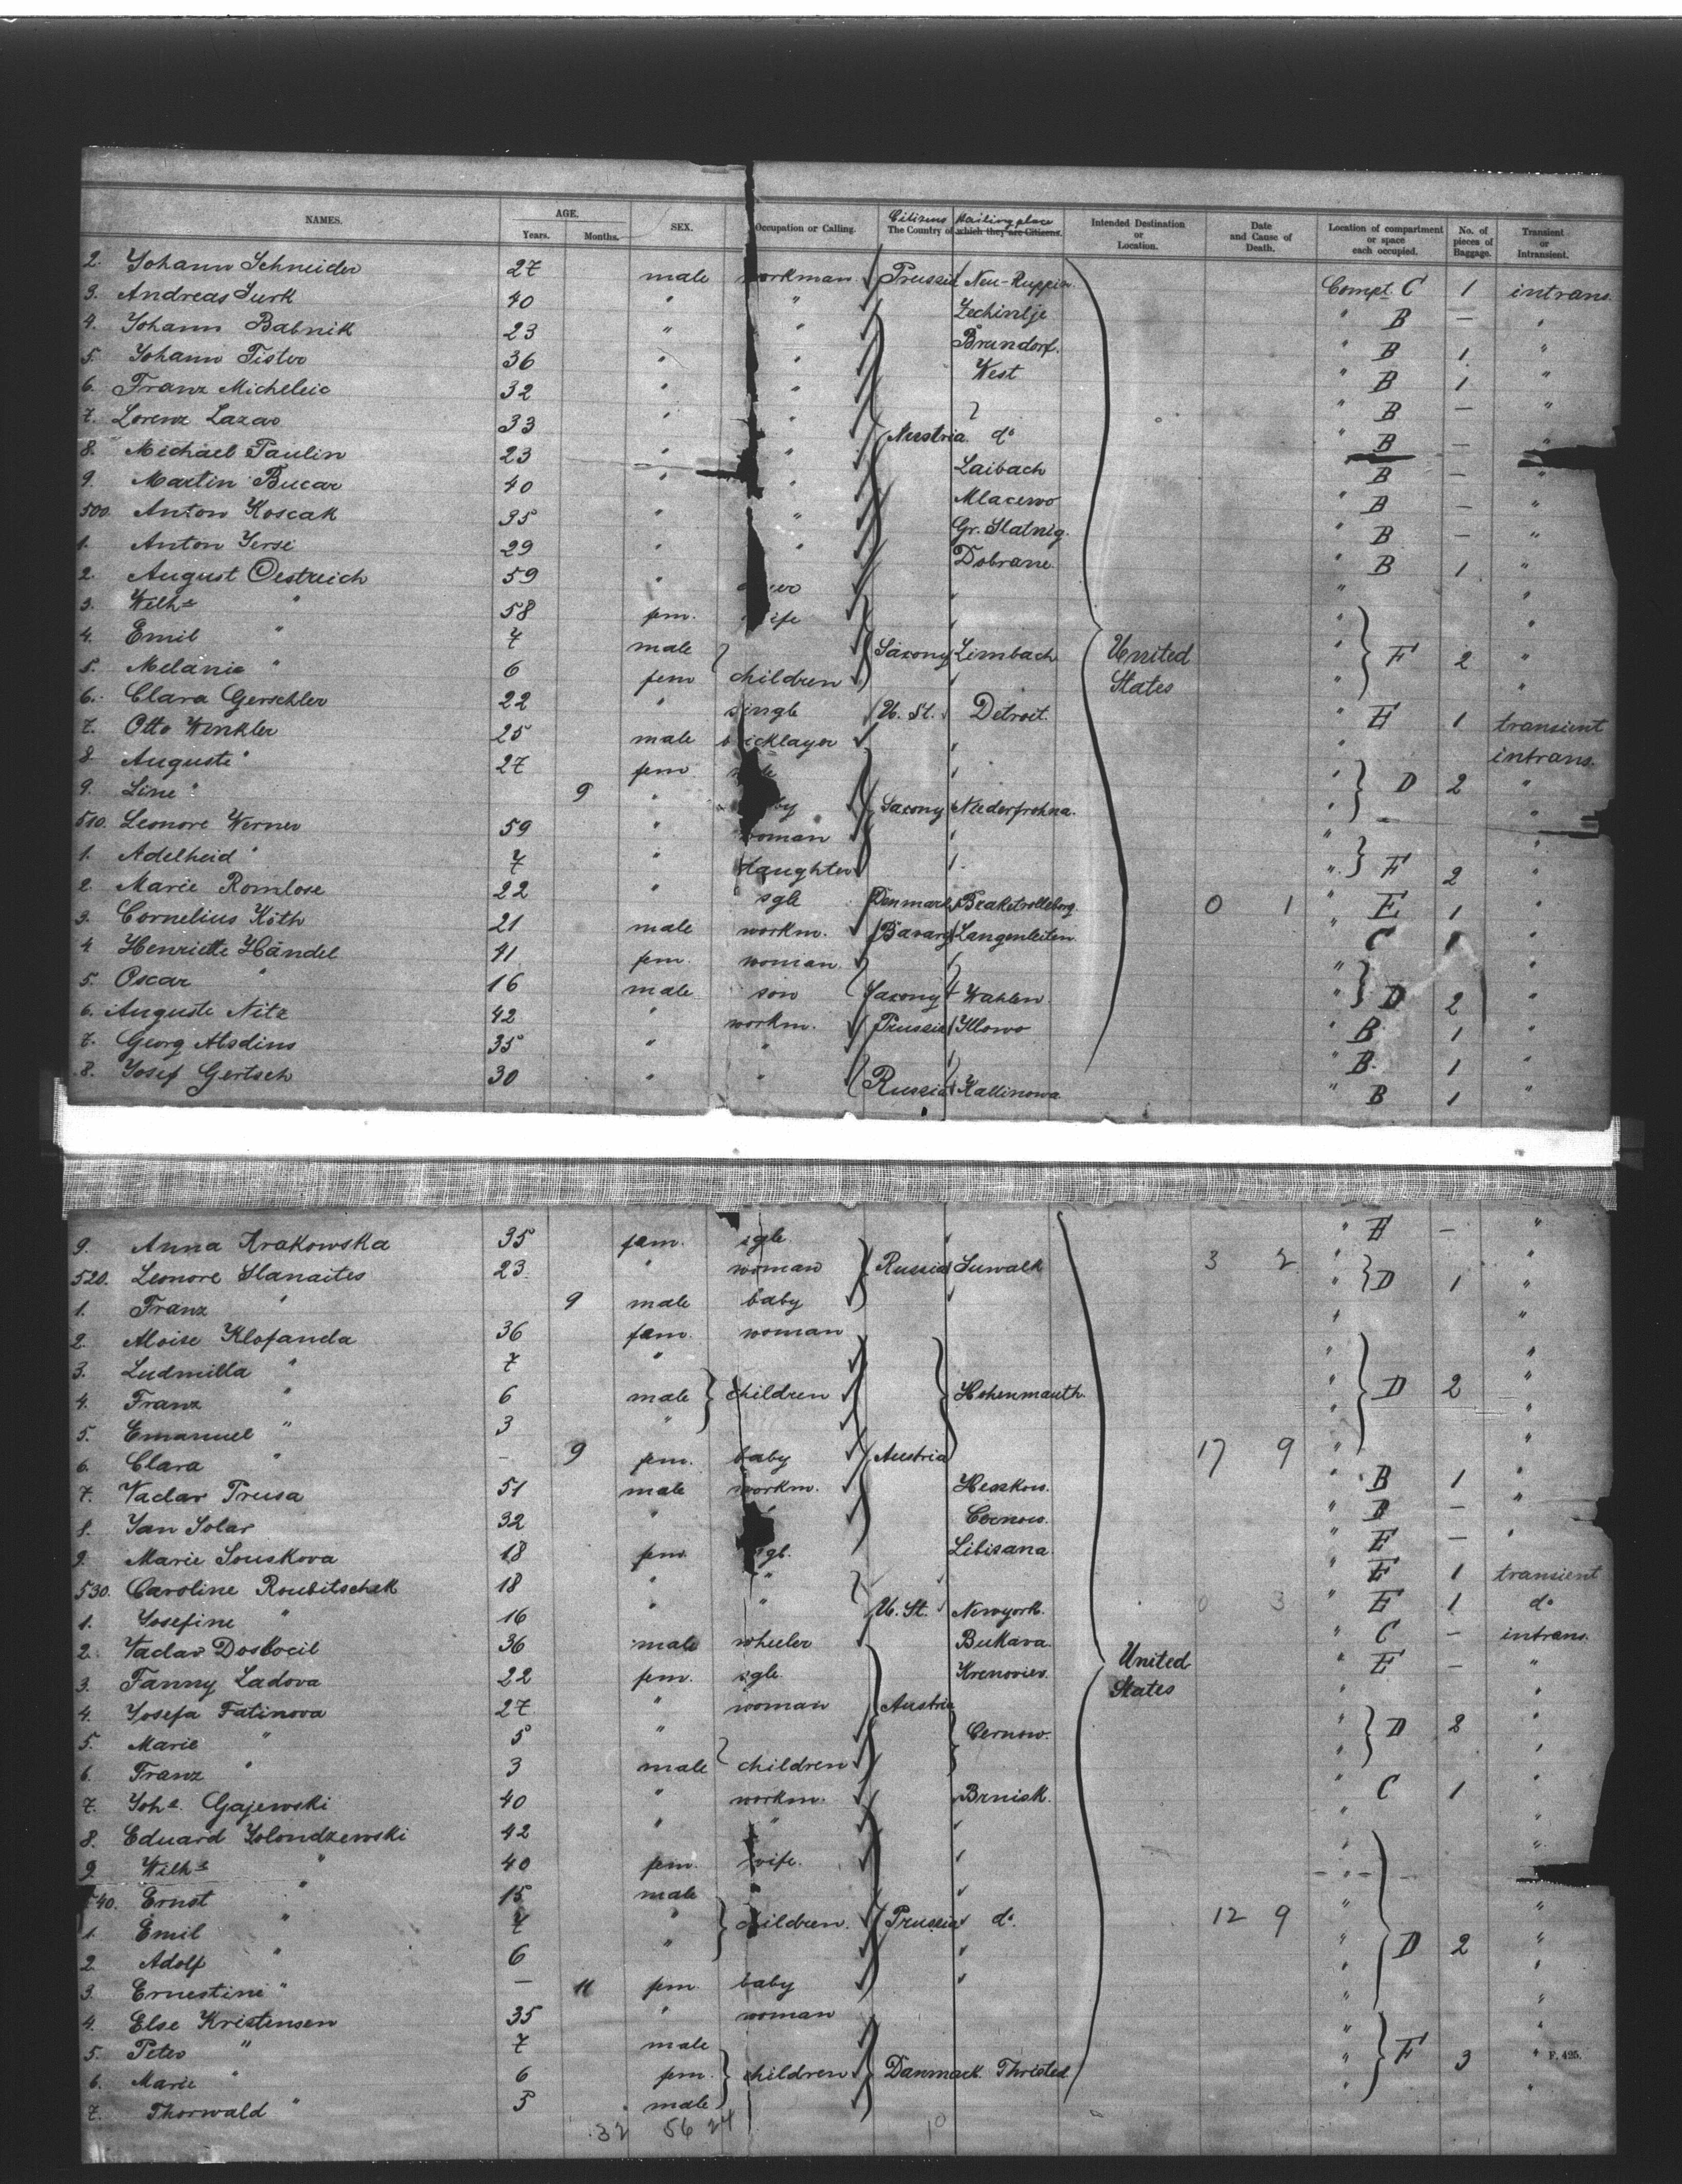 NAMES. AGE. Years. Months. SEX. Occupation or Calling. Citizens The Country of which they are Citizens. Hailing place Intended Destination or Location. Date and Cause of Death. Location of compartment or space each occupied. No. of pieces of Baggage. Transient or Intransient.
2. Johann Schneider 27 male workman Prussia Neu-Ruppin Compt. C 1 intrans.
3. Andreas Surk 40 " " Zechintje " B — "
4. Johann Babnik 23 " " Brundorf. " B 1 "
5. Johann Tister 36 " " West " B 1 "
6. Franz Micheleic 32 " " " B — "
7. Lorenz Lazar 33 " " Austria do " B — "
8. Michael Paulin 23 " " Laibach " B — "
9. Martin Bucar 40 " " Mlacewo " B — "
500. Anton Koscak 35 " " Gr. Slatnig. " B — "
1. Anton Jersi 29 " " Dobrane " B 1 "
2. August Oestreich 59 " " "
3. Wilhe " 58 fem. wife " "
4. Emil " 7 male Saxony Limbach United States " F 2 "
5. Melanie " 6 fem children " "
6. Clara Gerschler 22 " single U. St. Detroit. " E 1 transient
7. Otto Winkler 25 male bricklayer " intrans.
8 Auguste " 27 fem " D 2 "
9. Line " 9 " baby Saxony Niederfrohna. " "
510. Leonore Werner 59 " woman " "
1. Adelheid " 7 " daughter " F 2 "
2. Marie Romlose 22 " sgle Denmark Braketrolleborg 0 1 " E 1 "
3. Cornelius Köth 21 male workm. Bavary Langenleiten. " C 1 "
4 Henriette Händel 41 fem. woman " "
5. Oscar " 16 male son Saxony Wahlen. " D 2 "
6. Auguste Nitz 42 " workm. Prussia Illowo " B 1 "
7. Georg Alsdins 35 " " " B. 1 "
8. Josef Gertsch 30 " " Russia Kallinowa " B 1 "
9. Anna Krakowska 35 fem. sgle " E — "
520. Leonore Slanaites 23 " woman Russia Suwalk 3 2 " D 1 "
1. Franz " 9 male baby " "
2. Aloise Klofanda 36 fem. woman "
3. Ludmilla " 7 " " "
4. Franz " 6 male children Hohenmauth. " D 2 "
5. Emanuel " 3 " " "
6. Clara " — 9 fem. baby Austria 17 9 " "
7. Vaclav Prusa 51 male workm. " B 1 "
8. Jan Solar 32 " " B — "
9. Marie Souskova 18 fem. sgl. Libisana " E — "
530. Caroline Roubitschek 18 " " " E 1 transient
1. Josefine " 16 " " U. St. Newyork. 0 3 " E 1 do
2. Vaclav Doskocil 36 male wheeler Bukava. " C — intrans.
3. Fanny Ladova 22 fem. sgle. Krenovies. United States " E — "
4. Josefa Fatinova 27 " woman Austria " "
5. Marie " 5 " Cernow. " D 2 "
6. Franz " 3 male children " "
7. Johs. Gajewski 40 " workm. Brnisk. " C 1 "
8. Eduard Solondzewski 42 " " " "
9 Wilhe " 40 fem. wife. " "
540. Ernst " 15 male "
1. Emil " 7 " children. Prussia do. 12 9 " "
2 Adolf " 6 " " D 2 "
3. Ernestine " — 11 fem. baby " "
4. Else Kristensen 35 " woman " "
5. Peter " 7 male " F 3 "
6. Marie " 6 fem. children Danmack Thristed " "
7. Thorwald " 5 male
32 56 24 10
F. 425.